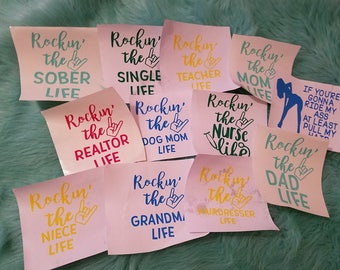 Rockin'
the
SOBER
LIFE
Rockin'
the
SINGLE
LIFE
Rockin'
the
TEACHER
LIFE
Rockin'
the
MOM
LIFE
IF YOU'RE
GONNA
RIDE MY
ASS
AT LEAST
PULL MY
Rockin'
the
REALTOR
LIFE
Rockin'
the
DOG MOM
LIFE
Rockin'
the
Nurse
life
Rockin'
the
DAD
LIFE
Rockin'
the
NIECE
LIFE
Rockin'
the
GRANDMA
LIFE
Rockin'
the
HAIRDRESSER
LIFE